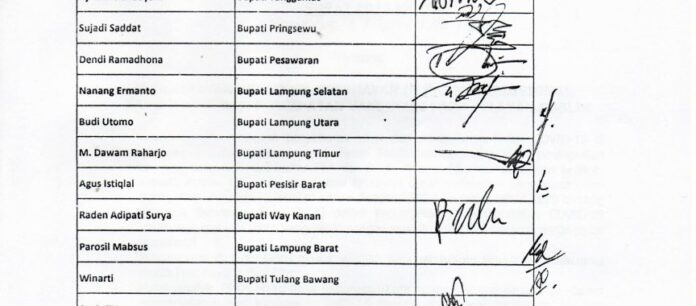 Sujadi Saddat Bupati Pringsewu
Dendi Ramadhona Bupati Pesawaran
Nanang Ermanto Bupati Lampung Selatan
Budi Utomo Bupati Lampung Utara
M. Dawam Raharjo Bupati Lampung Timur
Agus Istiqlal Bupati Pesisir Barat
Raden Adipati Surya Bupati Way Kanan
Parosil Mabsus Bupati Lampung Barat
Winarti Bupati Tulang Bawang